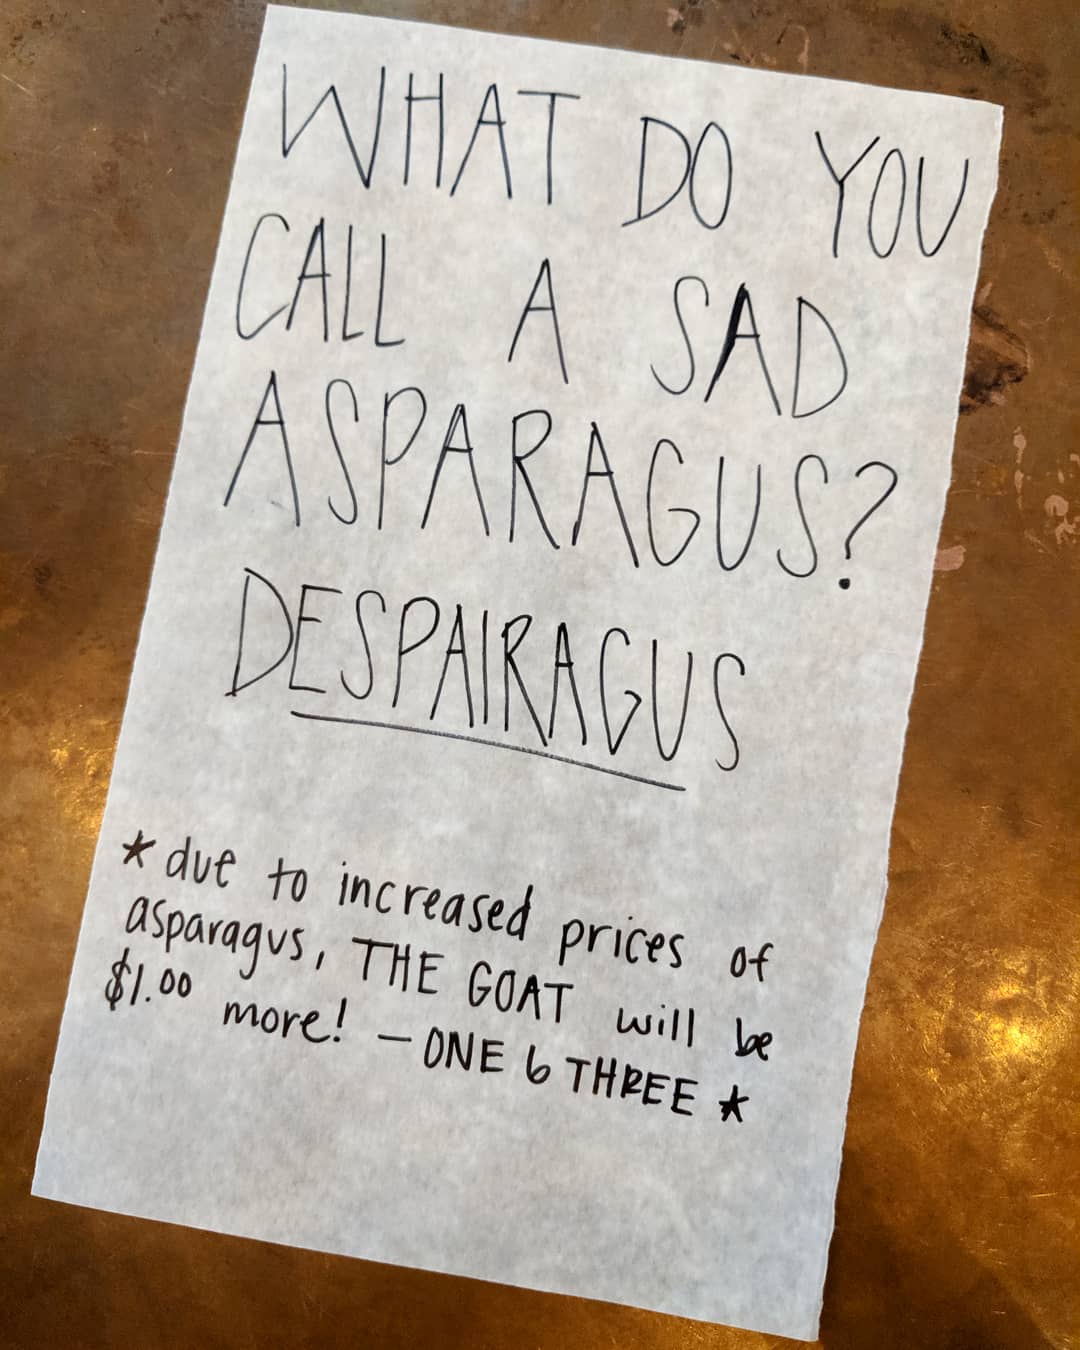 WHAT DO YOU
CALL A SAD
ASPARAGUS?
DESPAIRAGUS
* due to increased prices of
asparagus, THE GOAT will be
$1.00 more! - ONE 6 THREE *